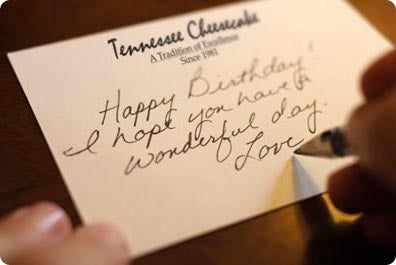 Tennessee Cheesecake
A Tradition of Excellence
Since 1981
Happy Birthday!
I hope you have a
wonderful day.
Love